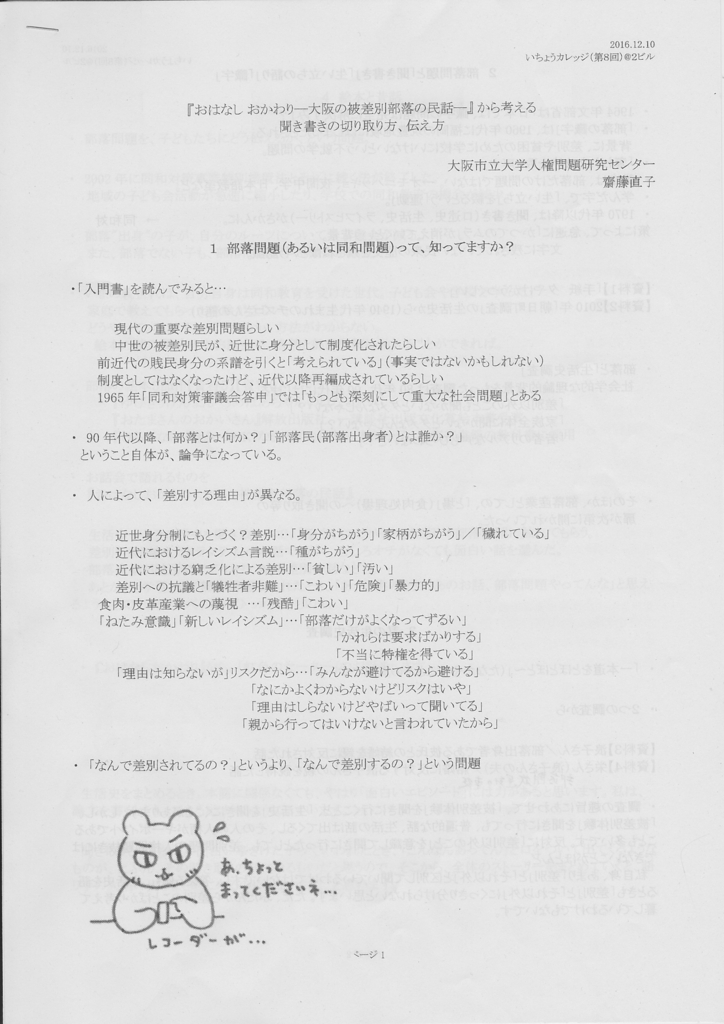 2016.12.10
いちょうカレッジ（第8回）@2ビル
『おはなし おかわり―大阪の被差別部落の民話―』から考える
聞き書きの切り取り方、伝え方
大阪市立大学人権問題研究センター
齋藤直子
1 部落問題（あるいは同和問題）って、知ってますか？
・「入門書」を読んでみると…
現代の重要な差別問題らしい
中世の被差別民が、近世に身分として制度化されたらしい
前近代の賤民身分の系譜を引くと「考えられている」（事実ではないかもしれない）
制度としてはなくなったけど、近代以降再編成されているらしい
1965年「同和対策審議会答申」では「もっとも深刻にして重大な社会問題」とある
・ 90年代以降、「部落とは何か？」「部落民（部落出身者）とは誰か？」
ということ自体が、論争になっている。
・ 人によって、「差別する理由」が異なる。
近世身分制にもとづく？差別…「身分がちがう」「家柄がちがう」／「穢れている」
近代におけるレイシズム言説…「種がちがう」
近代における窮乏化による差別…「貧しい」「汚い」
差別への抗議と「犠牲者非難」…「こわい」「危険」「暴力的」
食肉・皮革産業への蔑視 …「残酷」「こわい」
「ねたみ意識」「新しいレイシズム」…「部落だけがよくなってずるい」
「かれらは要求ばかりする」
「不当に特権を得ている」
「理由は知らないが」リスクだから…「みんなが避けてるから避ける」
「なにかよくわからないけどリスクはいや」
「理由はしらないけどやばいって聞いてる」
「親から行ってはいけないと言われていたから」
・ 「なんで差別されてるの？」というより、「なんで差別するの？」という問題
あ、ちょっと
まってくださいネ…
レコーダーが…
ページ 1